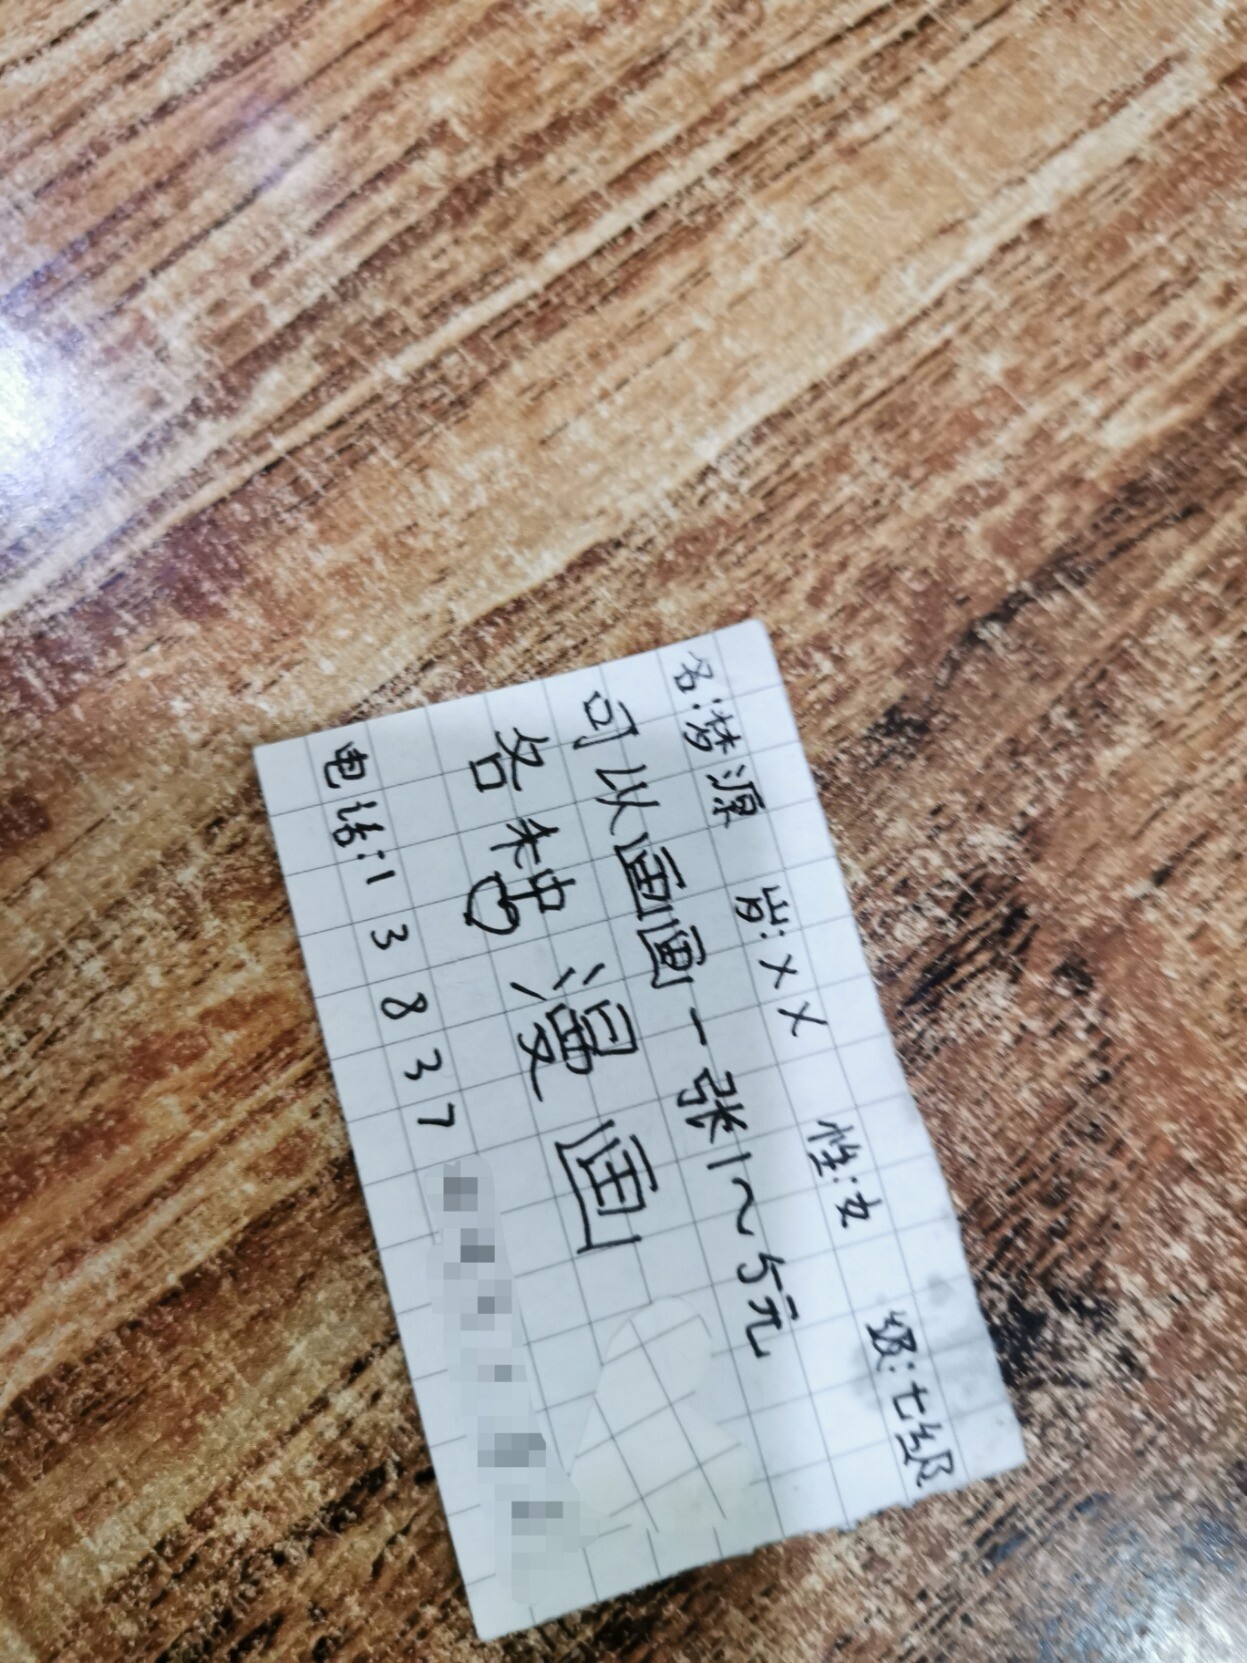 名:梦源 岁:XX 性:女 级:七级
可以画画一张1~5元
各种漫画
电话:13837